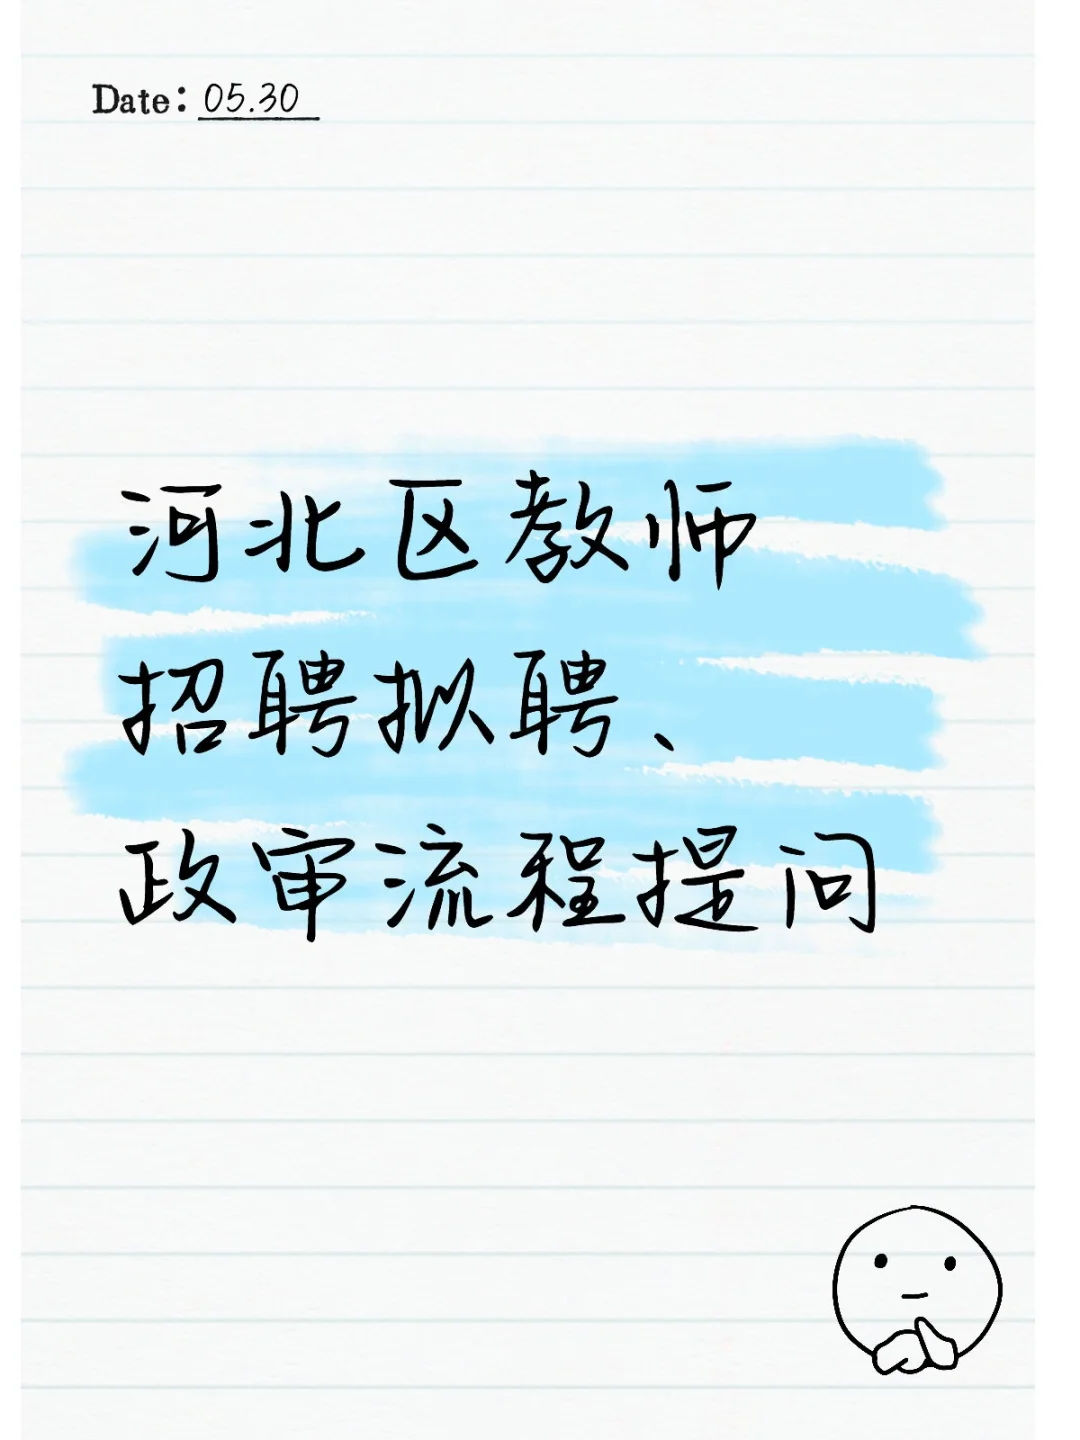 Date: 05.30
河北区教师
招聘拟聘、
政审流程提问